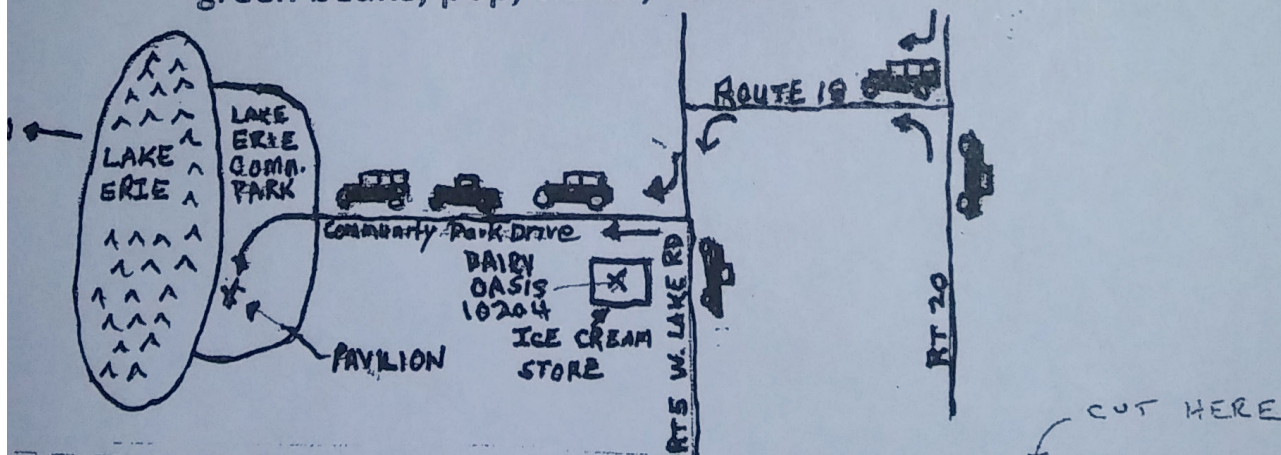 green beans, pop,
ROUTE 18
LAKE
ERIE
COMM.
PARK
LAKE
ERIE
Community Park Drive
DAIRY
OASIS
10204
X
ICE CREAM
STORE
PAVILION
RT 5 W. LAKE RD
RT 20
CUT HERE